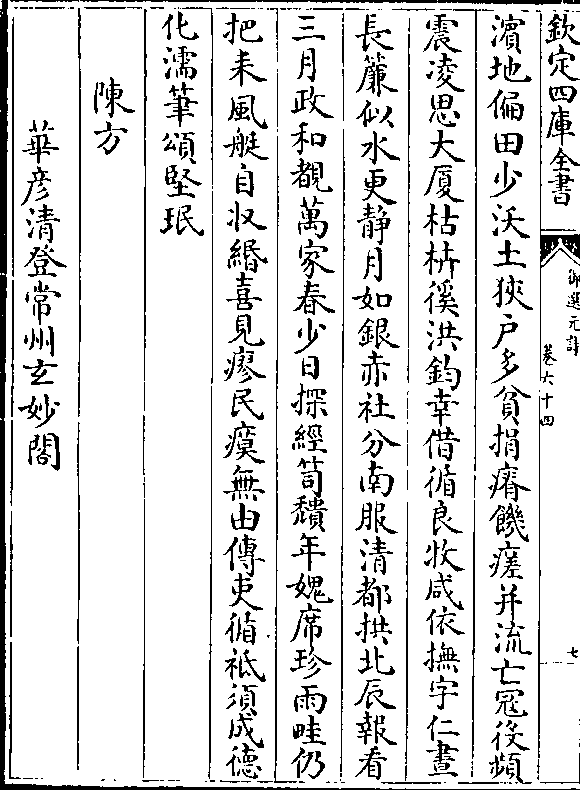 欽定四庫全書
御選元詩
卷六十四
七
濱地偏田少沃土狹戶多貧捐瘠饑瘥并流亡冦役頻
震凌思大厦枯枿徯洪鈞幸借循良牧咸依撫字仁晝
長簾似水更静月如銀赤社分南服清都拱北辰報看
三月政和覩萬家春少日探經笥頽年媿席珍雨畦仍
把耒風艇自收緡喜見瘳民瘼無由傳吏循祗須成德
化濡筆頌堅珉
陳方
華彦清登常州玄妙閣